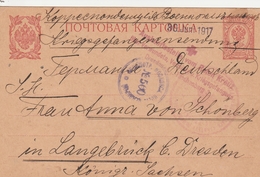 Корреспонденція Военноплѣнныхъ
ПОЧТОВАЯ КАРТОЧКА
1917
Kriegsgefangenensendung
Германія Deutschland
I. H.
Frau Anna von Schönberg
in Langebrück b. Dresden
Königr. Sachsen